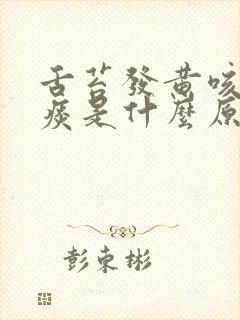 舌苔發黃咳
痰是什麼原
彭東彬